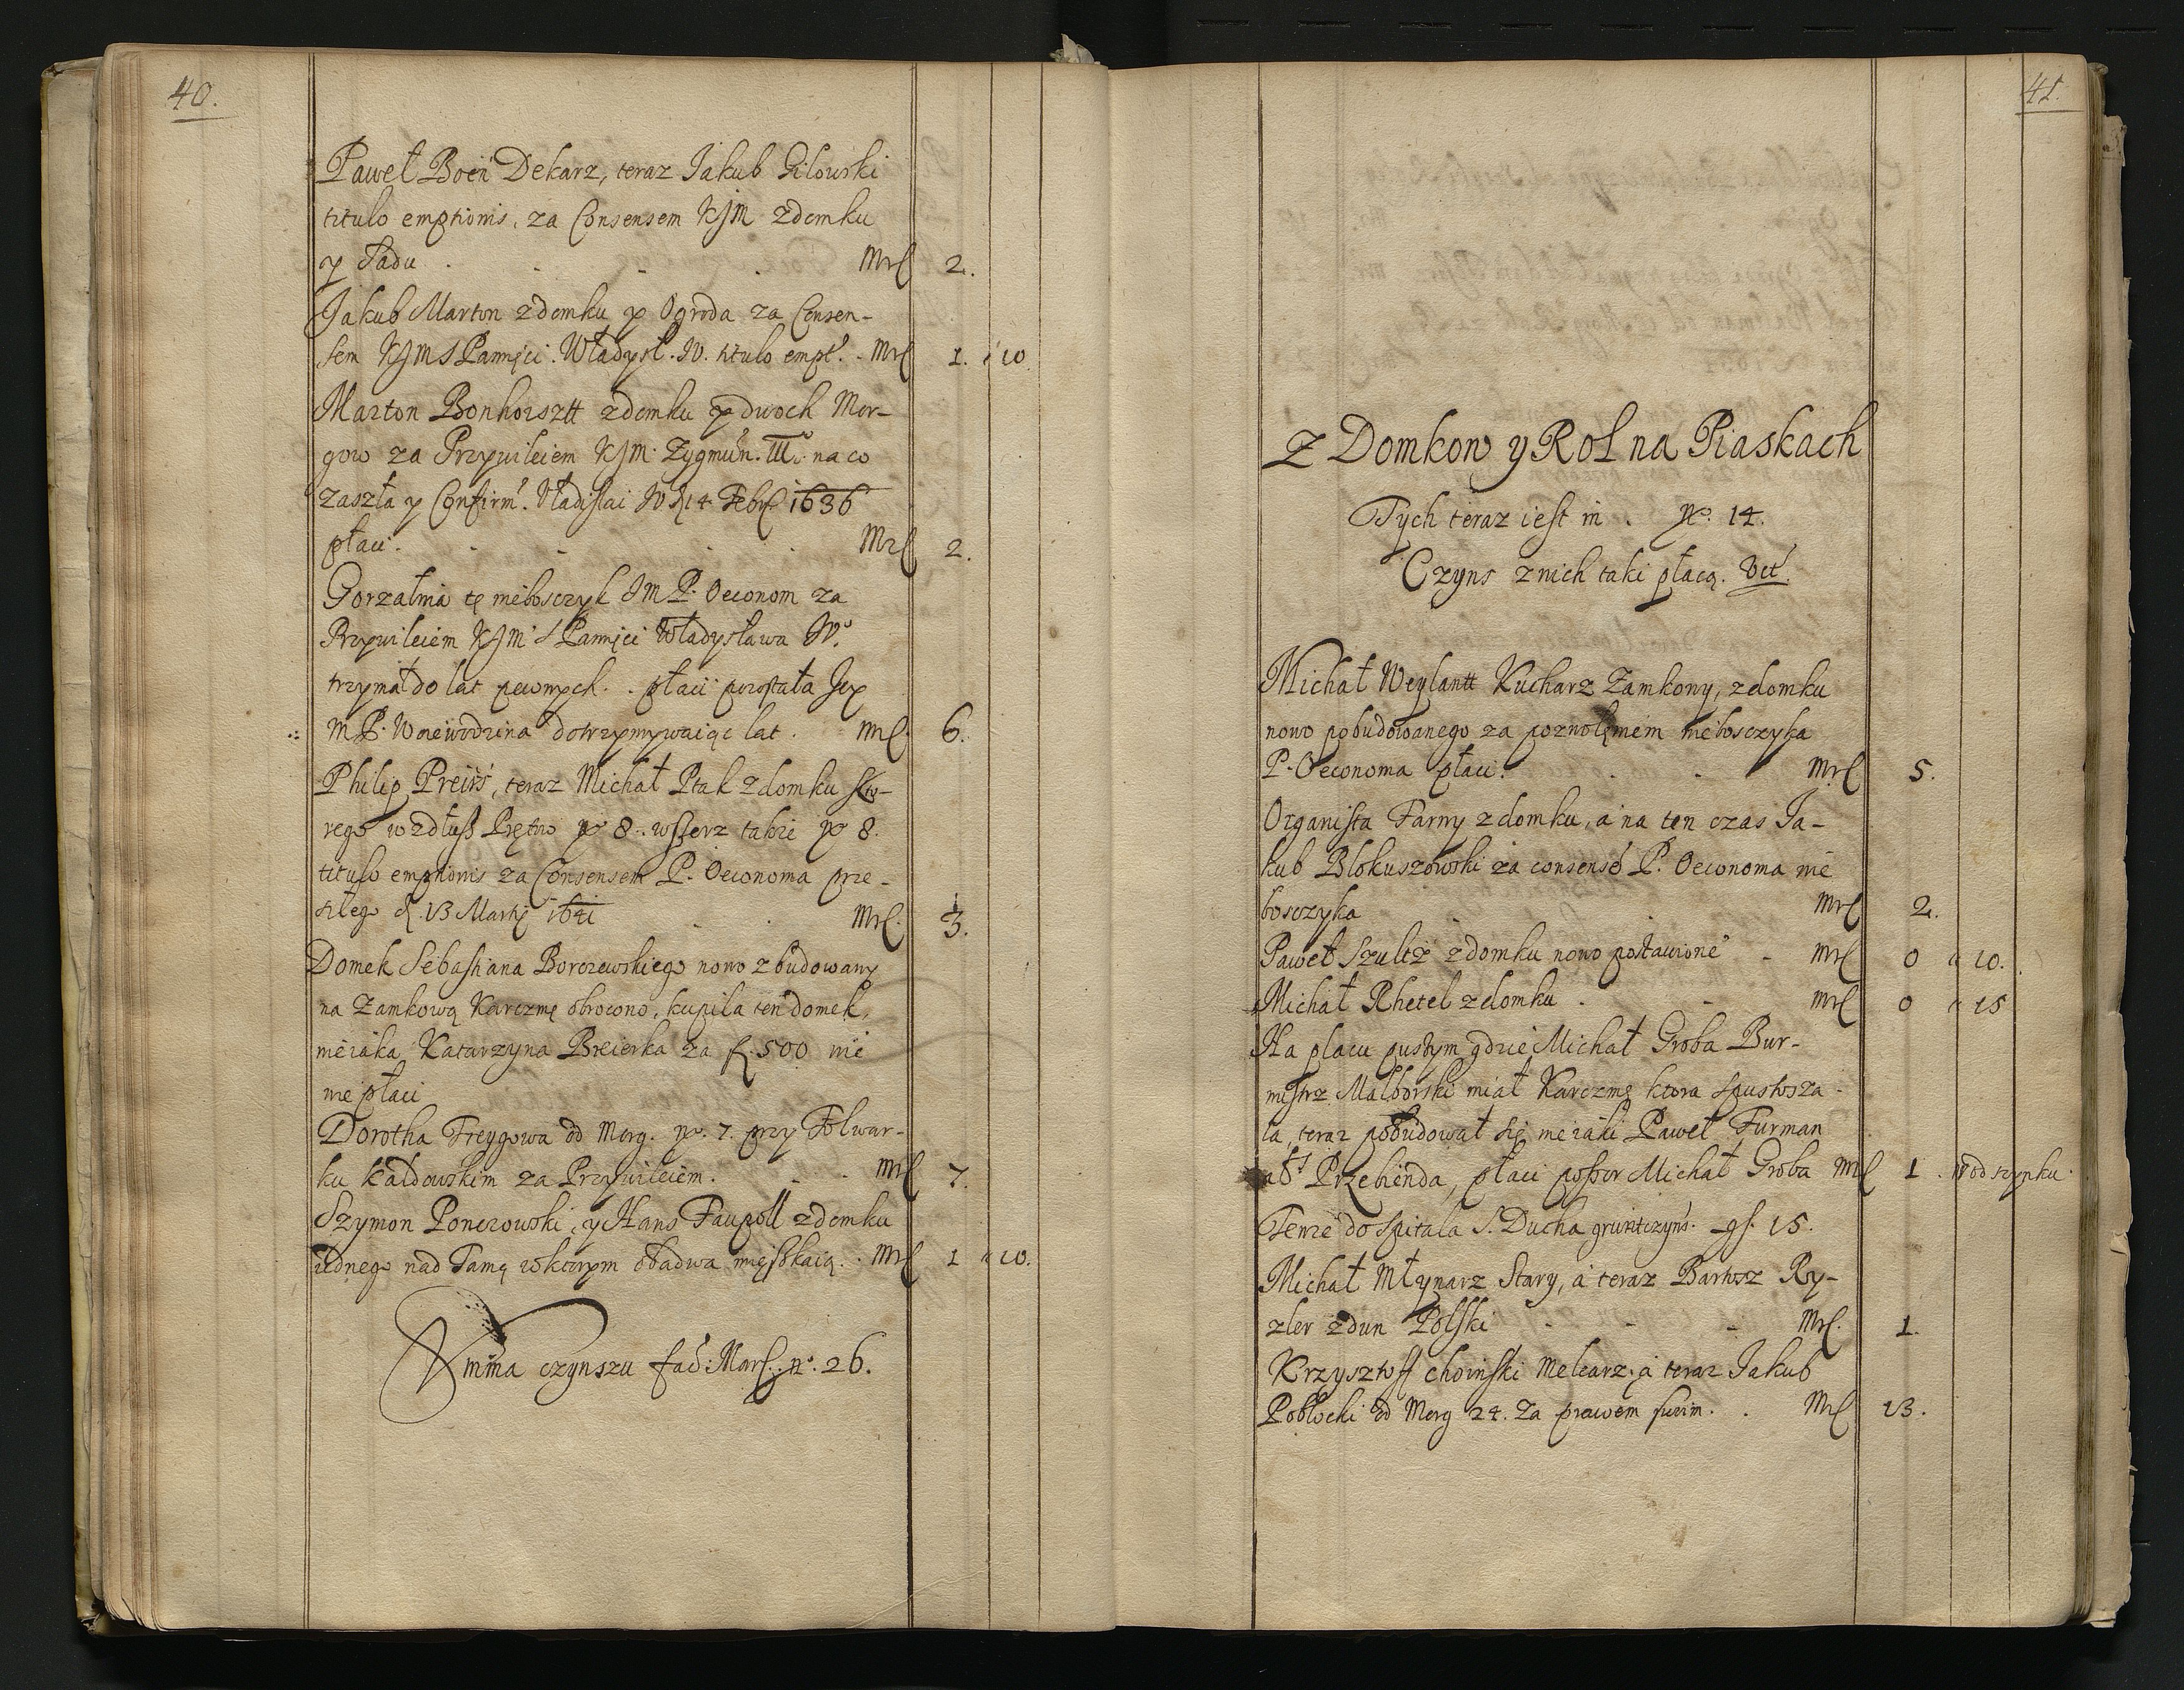 40.
Paweł Boeń Dekarz, teraz Jakub Gilowski
titulo emptionis, za Consensem KJM zdomku
y Sadu . . . . Mrſ 2.
Jakub Marton zdomku y Ogroda za Consen-
sem KJM S Pamięci. Władysł. IV. titulo empt. . Mrſ 1. " 10.
Marton Bonhorsztt zdomku y dwoch Mor-
gow za Przywileiem KJM. Zygmun. III. na co
zaszła y Confirm. Vladislai IV d 14 Febr. 1636
płaci. . . . . Mrſ 2.
Gorzałnia tę niebosczyk JMP. Oeconom za
Przywileiem KJM S Pamięci Władysława IV.
trzymał do lat pewnych. . płaci pozostała Jey
MP. Woiewodzina dotrzymywaiąc lat . Mrſ. 6.
Philip Preiss, teraz Michał Ptak zdomku kto-
rego wzdłuß Prętow No 8. wßerz takze No 8.
titulo emptionis za Consensem P. Oeconoma prze-
szłego d. 13 Martij 1641 . . Mrſ. 3.
Domek Sebastiana Borczewskiego nowo zbudowany
na Zamkową Karczmę obrocono, kupila ten domek,
nieiaka Katarzyna Breierka za f. 500 nie
nie płaci
Dorotha Freygowa od Morg. No. 7. przy Folwar-
ku Kałdowskim za Przywileiem. . . Mrſ 7.
Szymon Ponczowski, y Hans Faupoll zdomku
iednego nad Tamą wktorym obadwa mięszkaią. . Mrſ 1 " 10.
Summa czynszu fac: Marſ. No. 26.
41.
Z Domkow y Rol na Piaskach
Tych teraz iest in . No. 14.
Czyns znich taki płacą. Vct.
Michał Weylantt Kucharz Zamkowy, zdomku
nowo pobudowanego za pozwoleniem niebosczyka
P. Oeconoma płaci. . . Mrſ 5.
Organista Farny zdomku, a na ten czas Ja-
kub Blokuszowski za consensé P. Oeconoma nie
bosczyka . . Mrſ 2.
Paweł Szultz zdomku nowo postawione . Mrſ 0 " 10.
Michał Rhetel zdomku . . Mrſ 0 " 15
Na placu pustym gdzie Michał Groba Bur-
mistrz Malborski miał Karczmę ktora spustosza-
la, teraz pobudował się nieiaki Paweł Furman
als Przebienda, płaci possor Michał Groba Mrſ 1 . od szynku.
Tenze do szpitala S. Ducha gruntczyns. gſ. 15.
Michał Młynarz Stary, a teraz Bartosz Ry-
zler zdun Polski . . . Mrſ. 1.
Krzysztoff choinski Melcarz. a teraz Jakub
Pobłocki od Morg 24. Za prawem suvim. . Mrſ 13.